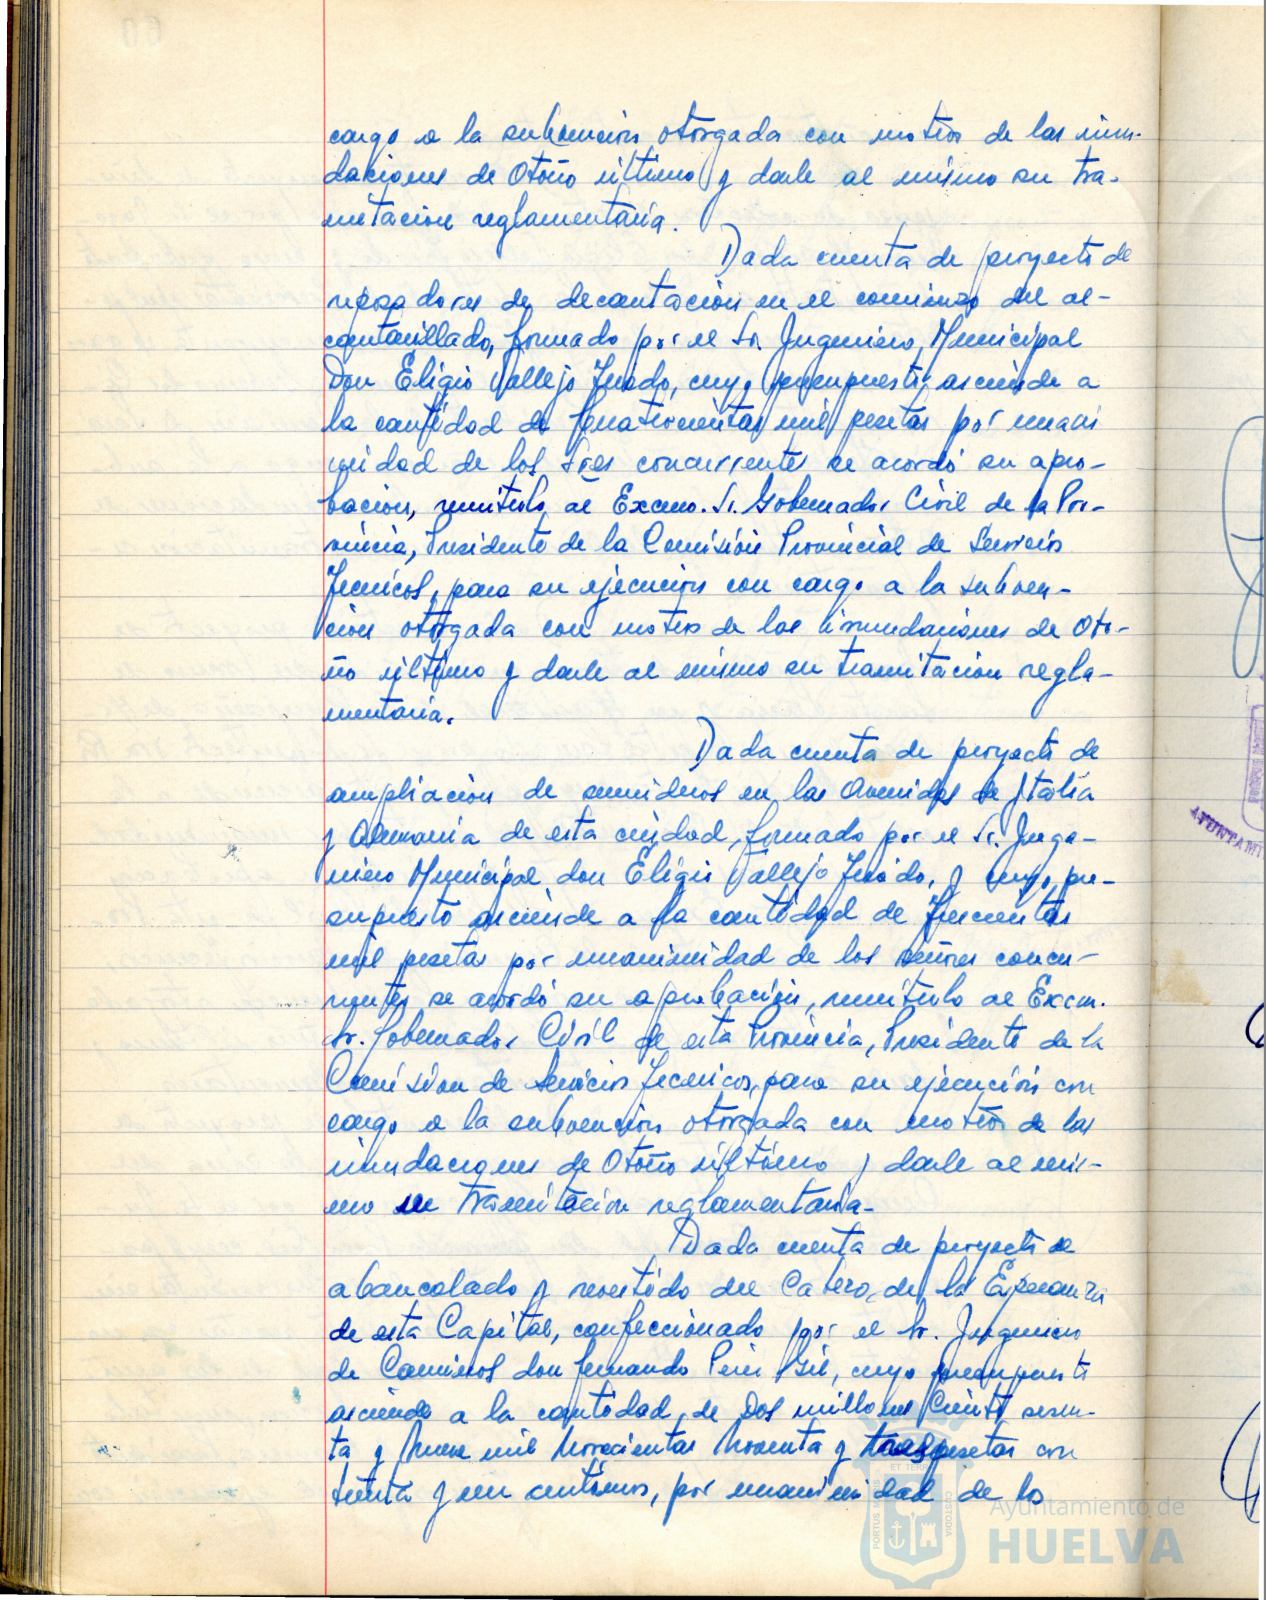 cargo a la subvención otorgada con motivo de las inun-
daciones de Otoño último y darle al mismo su tra-
mitación reglamentaria.
Dada cuenta de proyecto de
reposadores de decantación en el comienzo del al-
cantarillado, formado por el Sr. Ingeniero Municipal
Don Eligio Vallejo Jurado, cuyo presupuesto asciende a
la cantidad de Cuatrocientas mil pesetas por unani
midad de los Sres concurrentes se acordó su apro-
bación, remitirlo al Excmo. Sr. Gobernador Civil de la Pro-
vincia, Presidente de la Comisión Provincial de Servicios
Técnicos, para su ejecución con cargo a la subven-
ción otorgada con motivo de las inundaciones de Oto-
ño último y darle al mismo su tramitación regla-
mentaria.
Dada cuenta de proyecto de
ampliación de sumideros en las Avenidas de Italia
y Alemania de esta ciudad, formado por el Sr. Inge-
niero Municipal don Eligio Vallejo Jurado, y cuyo pre-
supuesto asciende a la cantidad de Trescientas
mil pesetas por unanimidad de los señores concu-
rrentes se acordó su aprobación, remitirlo al Excm.
Sr. Gobernador Civil de esta Provincia, Presidente de la
Comisión de Servicios Técnicos, para su ejecución con
cargo a la subvención otorgada con motivo de las
inundaciones de Otoño último y darle al mis-
mo su tramitación reglamentaria.
Dada cuenta de proyecto de
abancalado y revestido del Cabezo de la Esperanza
de esta Capital, confeccionado por el Sr. Ingeniero
de Caminos don Fernando Gil, cuyo presupuesto
asciende a la cantidad de Dos millones Ciento sesen-
ta y Nueve mil Novecientas Noventa y tres pesetas con
treinta y un centimos, por unanimidad de lo
PORTUS MARIS ET TERRAE CUSTODIA
Ayuntamiento de
HUELVA